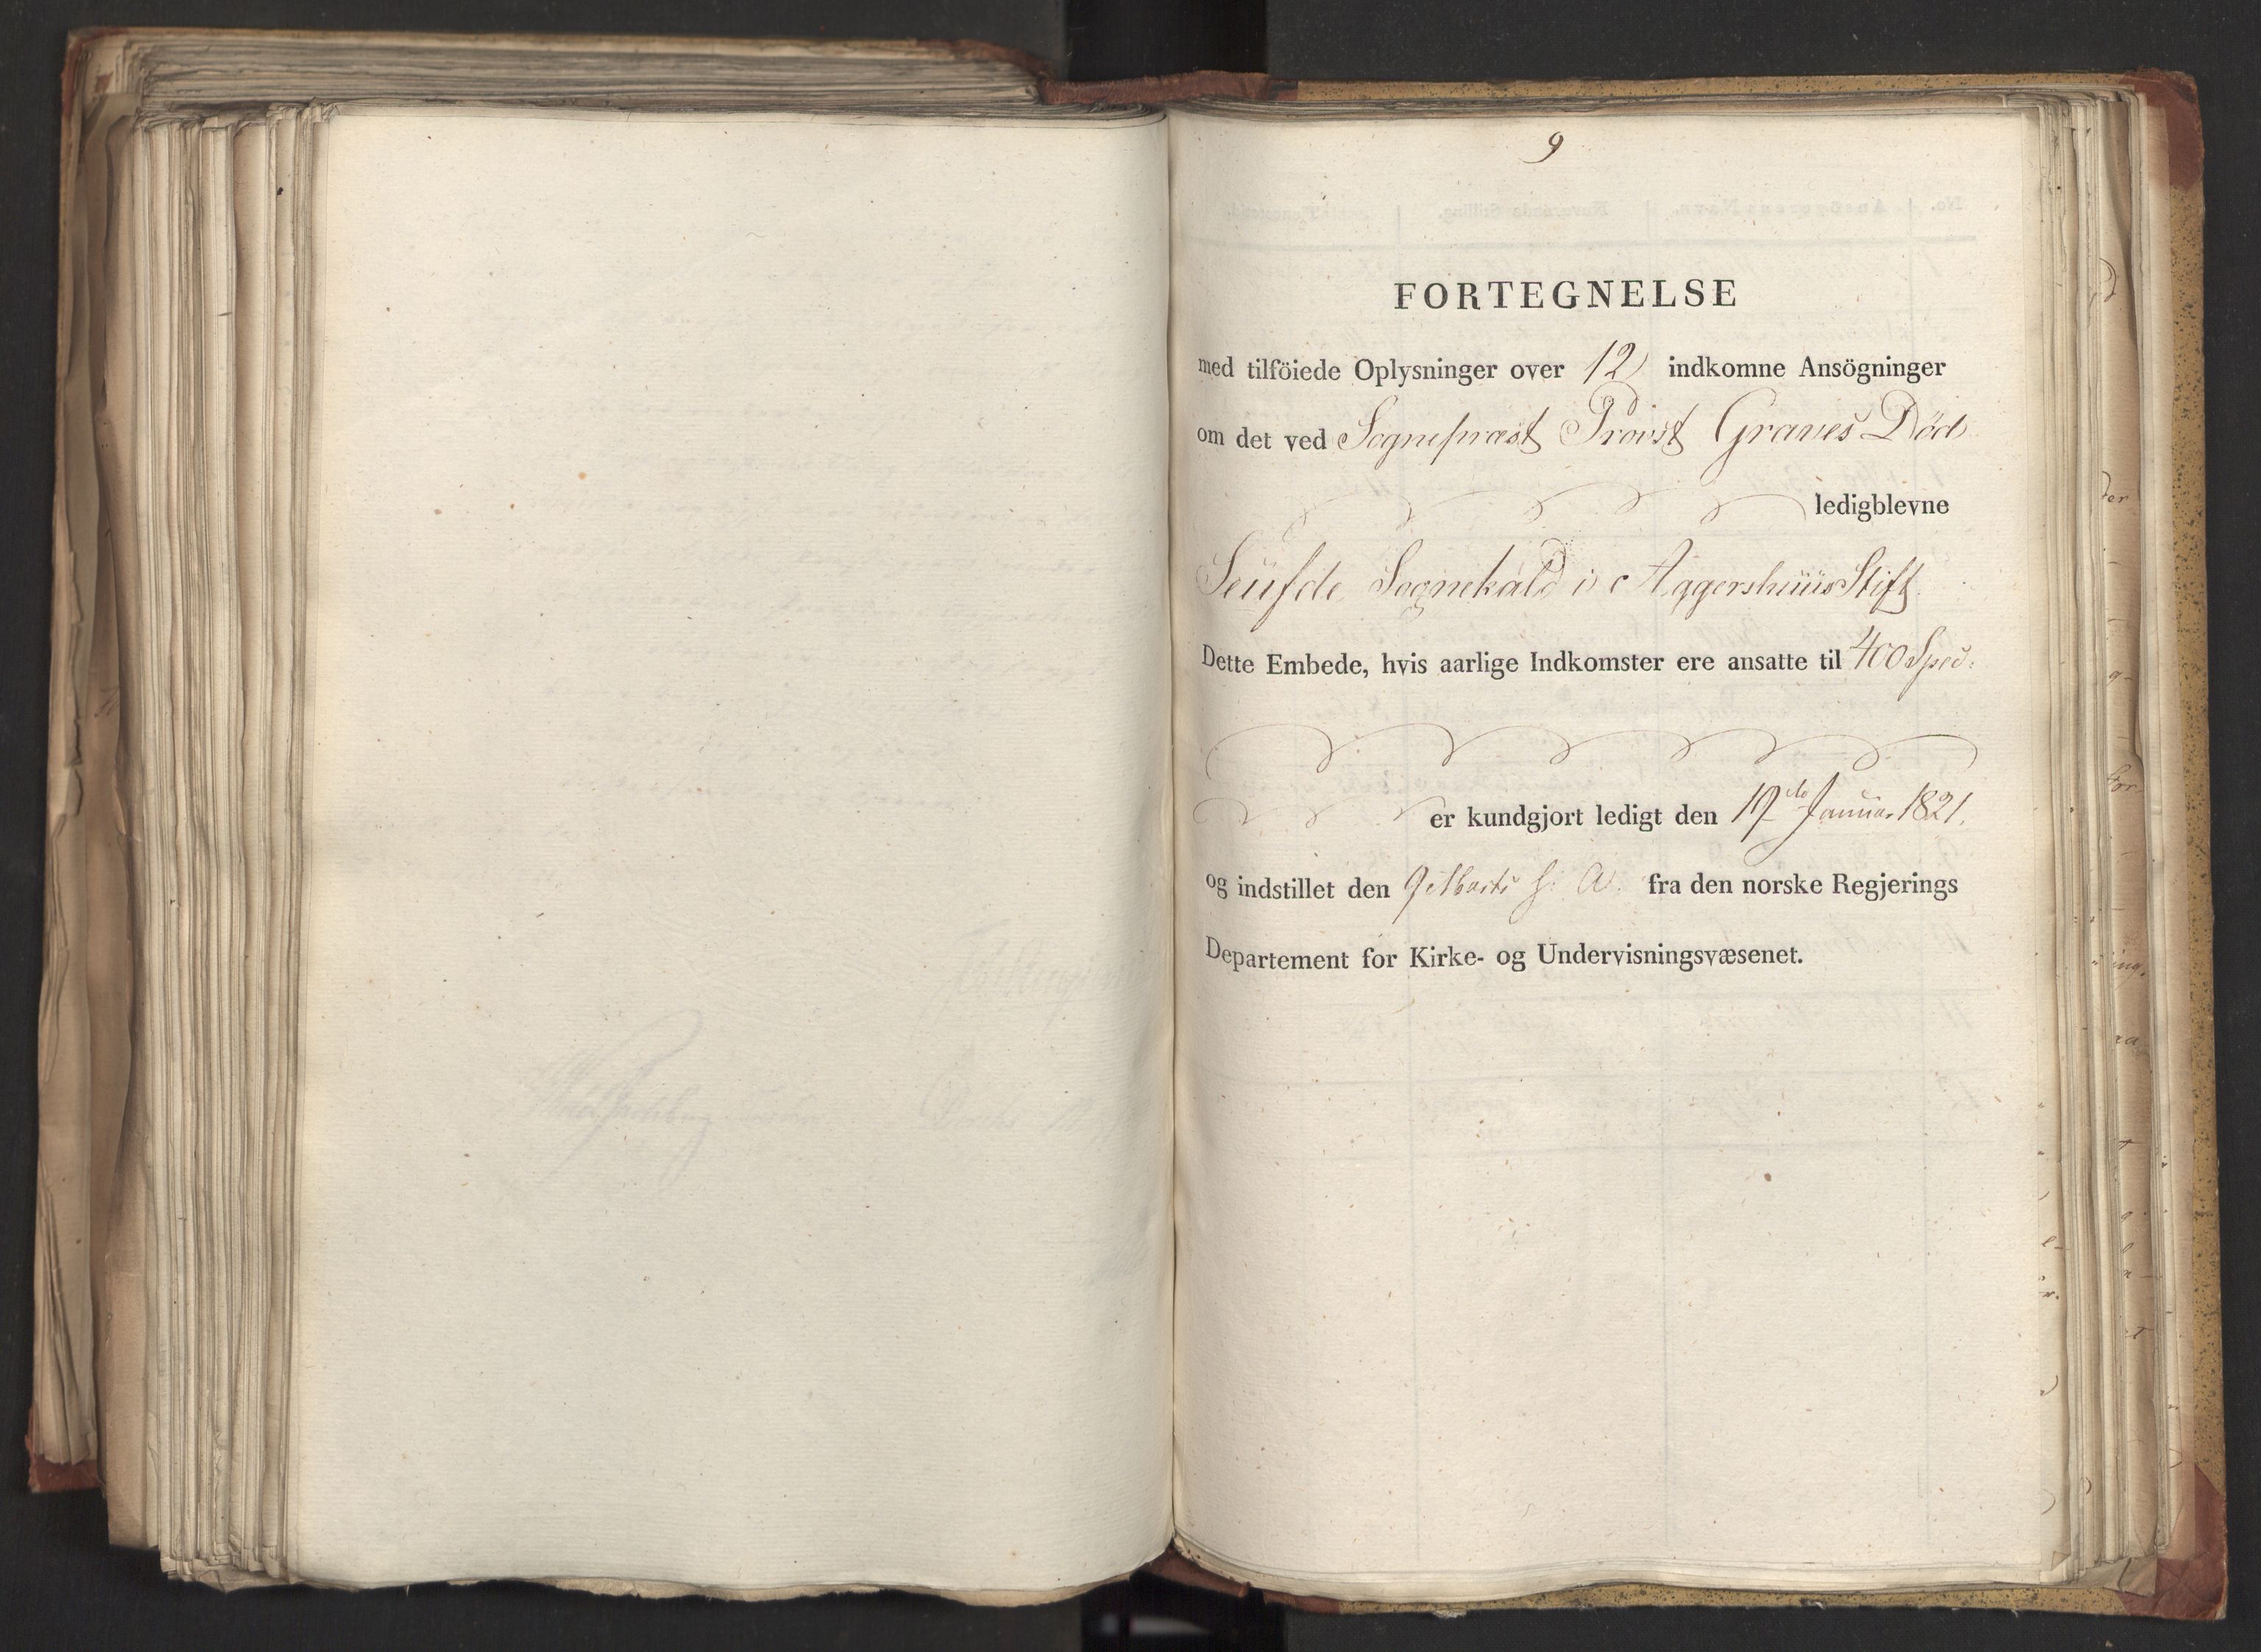 9
FORTEGNELSE
med tilföiede Oplysninger over 12 indkomne Ansögninger
om det ved Sognepræst Provst Graves Död
ledigblevne
Sognekald i Aggershuus Stift
Dette Embede, hvis aarlige Indkomster ere ansatte til 400 Spd:
er kundgjort ledigt den Januar 1821.
og indstillet den 9de Marts s: A. fra den norske Regjerings
Departement for Kirke- og Undervisningsvæsenet.